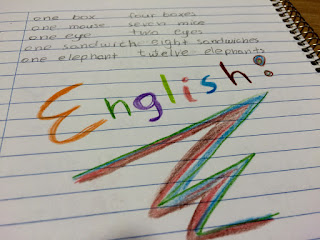 one box four boxes
one mouse seven mice
one eye two eyes
one sandwich eight sandwiches
one elephant twelve elephants
English!